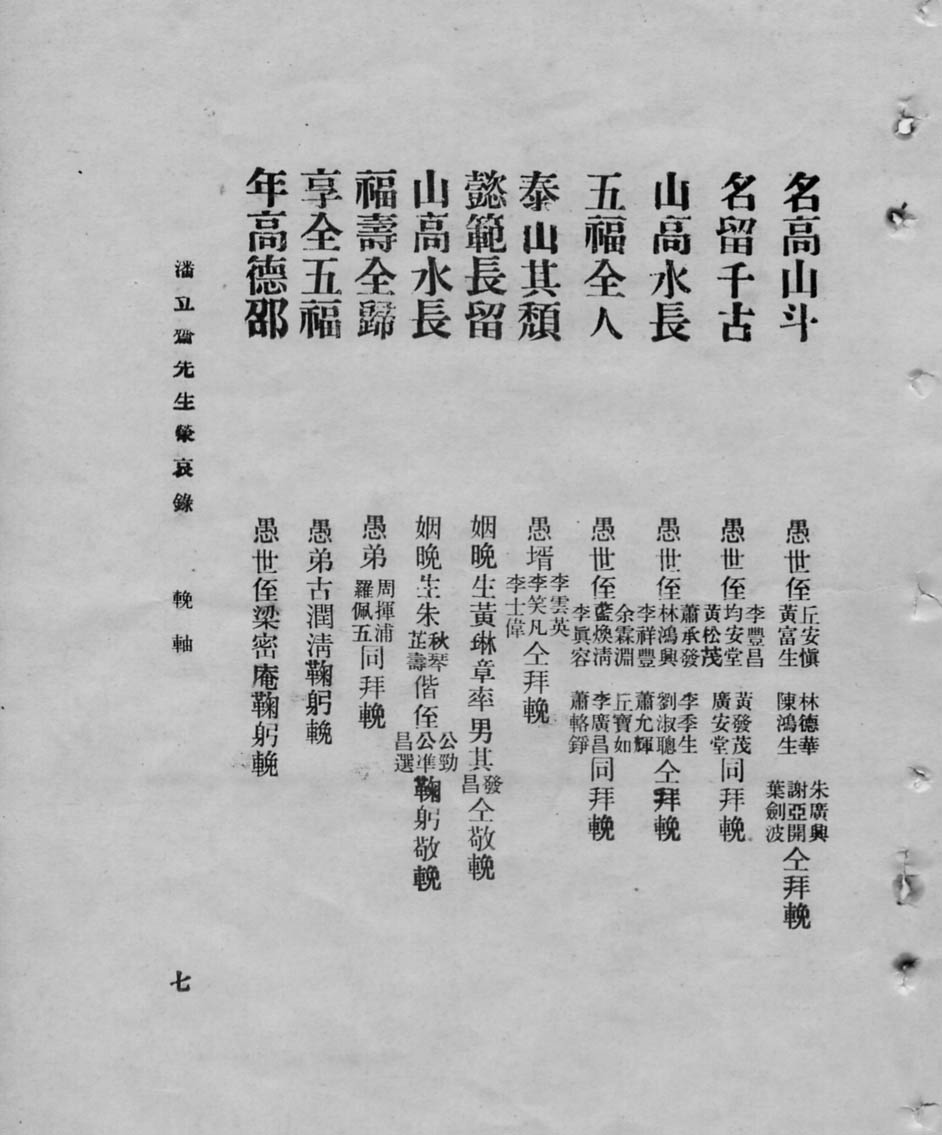 名高山斗 愚世侄 丘安慎 黃富生 林德華 陳鴻生 朱廣興 謝亞開 葉劍波 仝拜輓
名留千古 愚世侄 李豐昌 均安堂 黃松茂 黃發茂 廣安堂 同拜輓
山高水長 愚世侄 蕭承發 林鴻興 李祥豐 李季生 劉淑聰 蕭允輝 仝拜輓
五福全人 愚世侄 余霖淵 藍煥淸 李眞容 丘寶如 李廣昌 蕭輅錚 同拜輓
泰山其頹 愚壻 李雲英 李笑凡 李士偉 仝拜輓
懿範長留 姻晚生黃琳章率男其 發 昌 仝敬輓
山高水長 姻晚生朱 秋琴 芷壽 偕侄 公勁 公準 昌選 鞠躬敬輓
福壽全歸 愚弟 周揮浦 羅佩五 同拜輓
享全五福 愚弟古潤淸鞠躬輓
年高德邵 愚世侄梁密庵鞠躬輓
潘立齋先生榮哀錄 輓軸 七